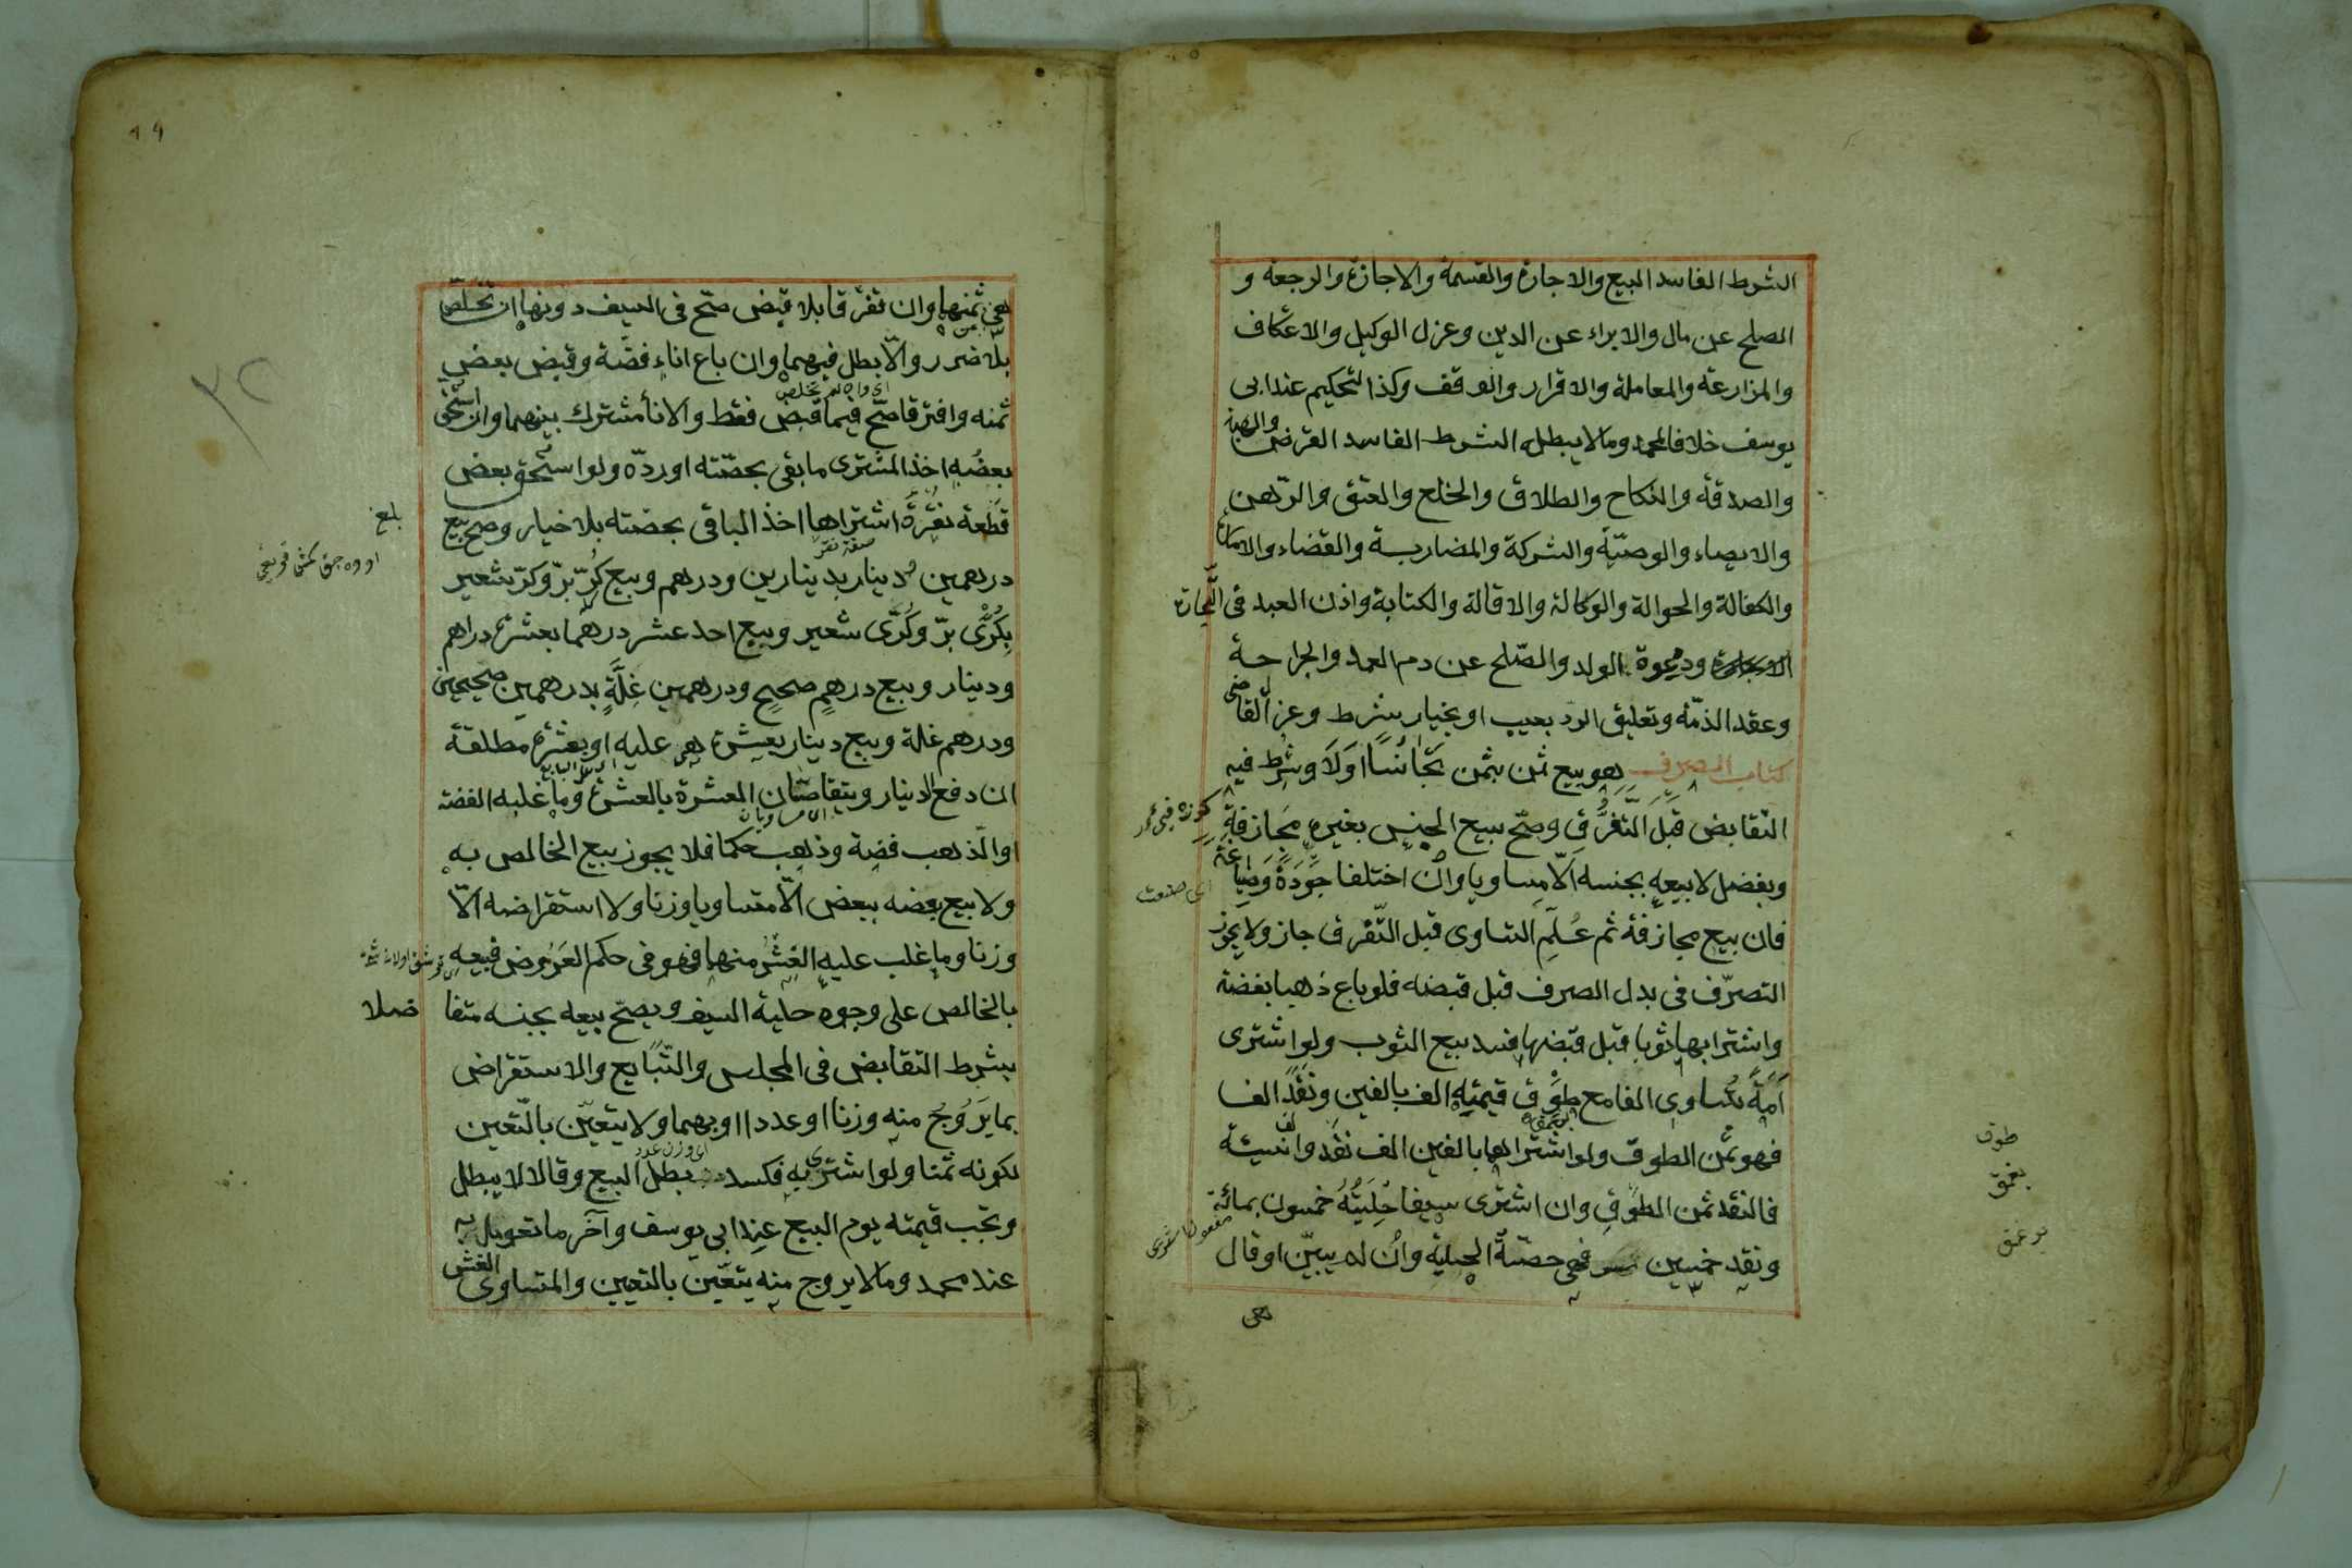 الشرط الفاسد البيع والاجارة والقسمة والاجازة والرجعة و
الصلح عن مال والابراء عن الدين وعزل الوكيل والاعتكاف
والمزارعة والمعاملة والاقرار والوقف وكذا التحكيم عند ابى
يوسف خلافا لمحمد وما لا يبطله الشرط الفاسد القرض والهبة
والصدقة والنكاح والطلاق والخلع والعتق والرّهن
والايصاء والوصيّة والشركة والمضاربة والقضاء والامارة
والكفالة والحوالة والوكالة والاقالة والكتابة واذن العبد فى التّجارة
ودعوة الولد والصّلح عن دم العمد والجراحة
وعقد الذمّة وتعليق الردّ بعيب او بخيار شرط وعزل القاضى
كتاب الصرف هو بيع ثمن بثمن تجانسا اولا وشرط فيه
التقابض قبل التّفرّق وصحّ بيع الجنس بغيره مجازفة
وبفضل لا بيعه بجنسه الّا متساويا وان اختلفا جودة وصياغة
اى صنعت
فان بيع مجازفة ثم عُلم التساوى قبل التّفرق جاز ولا يجوز
التصرّف فى بدل الصرف قبل قبضه فلو باع ذهبا بفضة
واشترا بها ثوبا قبل قبضها فسد بيع الثوب ولو اشترى
اَمَةً تساوى الفا مع طوق قيمته الف بالفين ونقد الفا
فهو ثمن الطوق ولو اشتراها بالفين الف نقد والف نسيئة
طوق
فالنقد ثمن الطوق وان اشترى سيفا حليته خمسون بمائة
ونقد خمسين فهى حصّة الحلية وان لم يبيّن او قال
هى
هى ثمنها وان تفرّقا بلا قبض صحّ فى السيف دونها ان تخلّص
بلا ضرر والّا بطل فيهما وان باع اناء فضّة وقبض بعض
اى وان لم يتخلص
ثمنه وافترقا صحّ فيما قبض فقط والاناء مشترك بينهما وان استحق
بعضه اخذ المشترى ما بقى بحصّته او ردّه ولو استحق بعض
قطعة نقرة اشتراها اخذ الباقى بحصّته بلا خيار وصح بيع
بلغ
درهمين ودينار بدينارين ودرهم وبيع كرّ برّ وكرّ شعير
بكرّى برّ وكرّى شعير وبيع احد عشر درهما بعشرة دراهم
ودينار وبيع درهم صحيح ودرهمين غلّة بدرهمين صحيحين
ودرهم غلة وبيع دينار بعشرة هى عليه او بعشرة مطلقة
ان دفع الدينار ويتقاصّان العشرة بالعشرة وما غلبه الفضة
او الذهب فضة وذهب حكما فلا يجوز بيع الخالص به
ولا بيع بعضه ببعض الّا متساويا وزنا ولا استقراضه الّا
وزنا وما غلب عليه الغشّ منها فهو فى حكم العروض فبيعه
بالخالص على وجوه حلية السيف ويصحّ بيعه بجنسه متفاضلا
بشرط التقابض فى المجلس والتّبايع والاستقراض
بما يروج منه وزنا او عددا او بهما ولا يتعيّن بالتّعين
لكونه ثمنا ولو اشترى به فكسد بطل البيع وقالا لا يبطل
وتجب قيمته يوم البيع عند ابى يوسف وآخر ما تعومل به
عند محمد وما لا يروج منه يتعيّن بالتعيين والمتساوى الغش